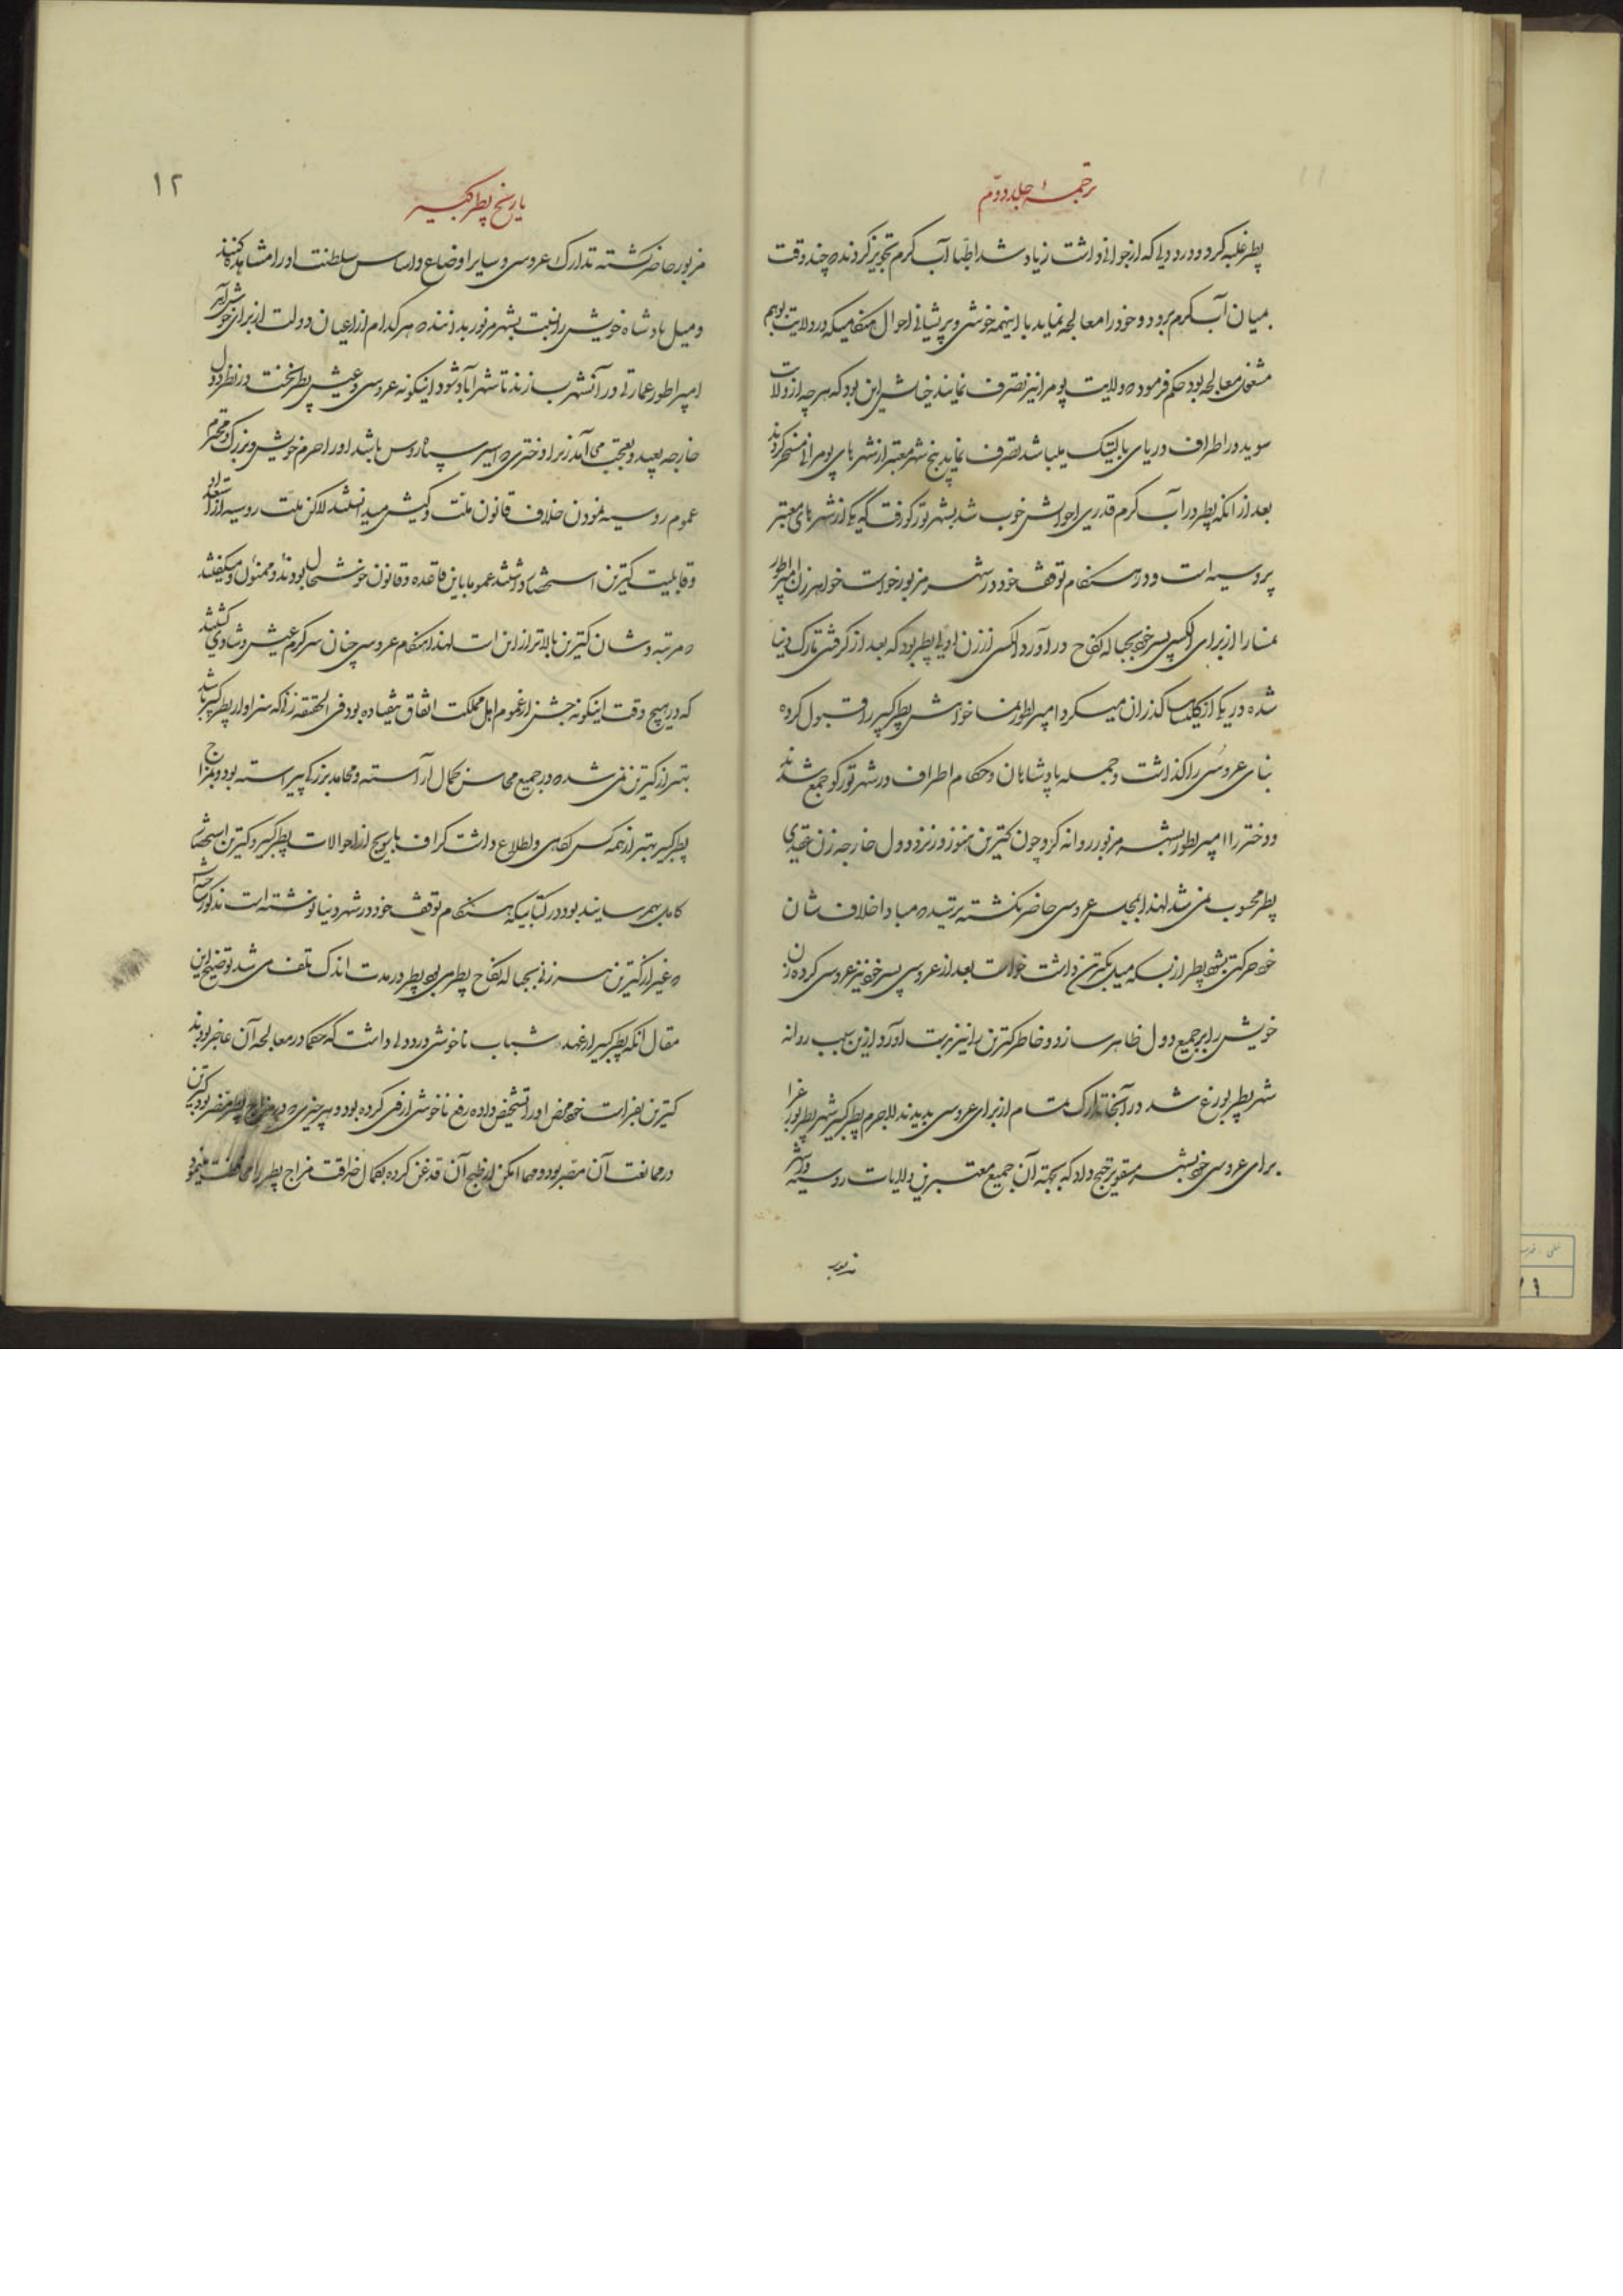 ترجمهٔ جلد دوّم
پطر غلبه کرد و درد دلی که از جوانی داشت زیاد شد اطبّا آب گرم تجویز کردند که چند وقت
میان آب گرم برود و خود را معالجه نماید با اینهمه ناخوشی و پریشانی احوال هنگامیکه در ولایت بوهم
مشغول معالجه بود حکم فرمود که ولایت پومرا نیز تصرف نمایند خیالش این بود که هر چه از ولایات
سوید در اطراف دریای بالتیک میباشد تصرف نماید پنج شهر معتبر از شهرهای پومرانی مسخر کردند
بعد از آنکه پطر در آب گرم قدری احوالش خوب شد بشهر تورکو رفت که یکی از شهرهای معتبر
پروسیه است و در هنگام توقف خود در شهر مزبور خواست خواهر زن امپراطور
نمسا را از برای الکسی پسر خود بحباله نکاح در آورد الکسی از زن اول پطر بود که بعد از گرفتن تارک دنیا
شده در یکی از کلیساها گذران میکرد امپراطور نمسا خواهش پطر کبیر را قبول کرده
بنای عروسی را گذاشت و جمله پادشاهان و حکام اطراف در شهر تورکو جمع شدند
و دختر را امپراطور بشهر مزبور روانه کرد چون کترین هنوز در نزد دول خارجه زن عقدی
پطر محسوب نمی شد لهذا بمجلس عروسی حاضر نگشته ترسید که مبادا خلاف شان
خود حرکتی بشود پطر از بسکه میل بکترین داشت خواست بعد از عروسی پسر خود نیز عروسی کرده زن
خویش را بر جمیع دول ظاهر سازد و خاطر کترین را نیز بدست آورد از این سبب روانه
شهر پطربورغ شد در آنجا تدارک تمام از برای عروسی بدیدند لاجرم پطر کبیر شهر پطربورغ را
برای عروسی خود بشهر مسقو ترجیح داد که بجهة آن جمیع معتبرین ولایات روسیه در شهر
مزبور
۱۲
تاریخ پطر کبیر
مزبور حاضر گشته تدارک عروسی و سایر اوضاع و اساس سلطنت او را مشاهده کنند
و میل پادشاه خویش را نسبت بشهر مزبور بدانند که هر کدام از اعیان دولت از برای خوش آمد
امپراطور عمارتی در آنشهر بسازند تا شهر آباد شود اینگونه عروسی و عیش پطر سخت در نظر دول
خارجه بعید و بعجب می آمد زیرا دختری که اسیر سپاه روس باشد او را حرم خویش و بزرگ و محترم
عموم روسیه نمودن خلاف قانون ملت و کیش میدانستند لاکن ملت روسیه از استعداد
و قابلیت کترین استحضار داشتند عموما باین قاعده و قانون خوشحال بودند و ممنون و میگفتند
که مرتبه و شان کترین بالاتر از این است لهذا هنگام عروسی چنان سرگرم عیش و شادی گشتند
که در هیچ وقت اینگونه جشن از عموم اهل مملکت اتفاق نیفتاده بود فی الحقیقه زنی که سزاوار پطر کبیر باشد
بهتر از کترین نمی شد که در جمیع محاسن کمال آراسته و محامد بزرگی پیراسته بود و بمزاج
پطر کبیر بهتر از همه کس آگاهی و اطلاع داشت گراف باسویچ از احوالات پطر کبیر و کترین استحضار
کامل بهم رسانیده بود در کتابیکه هنگام توقف خود در شهر وینا نوشته است مذکور ساخته است
که غیر از کترین هر زنی بحباله نکاح پطر می بود پطر در مدت اندک تلف می شد توضیح این
مقال آنکه پطر کبیر از عهد شباب ناخوشی درد دلی داشت که حکما در معالجه آن عاجز بودند
کترین بفراست خود مرض او را تشخیص داده رفع ناخوشی از وی کرده بود و هر چیزی که در مزاج پطر مضر بود کترین
در ممانعت آن مصر بود و مهما امکن از طبخ آن قدغن کرده بکمال مراقبت مزاج پطر را محافظت مینمود